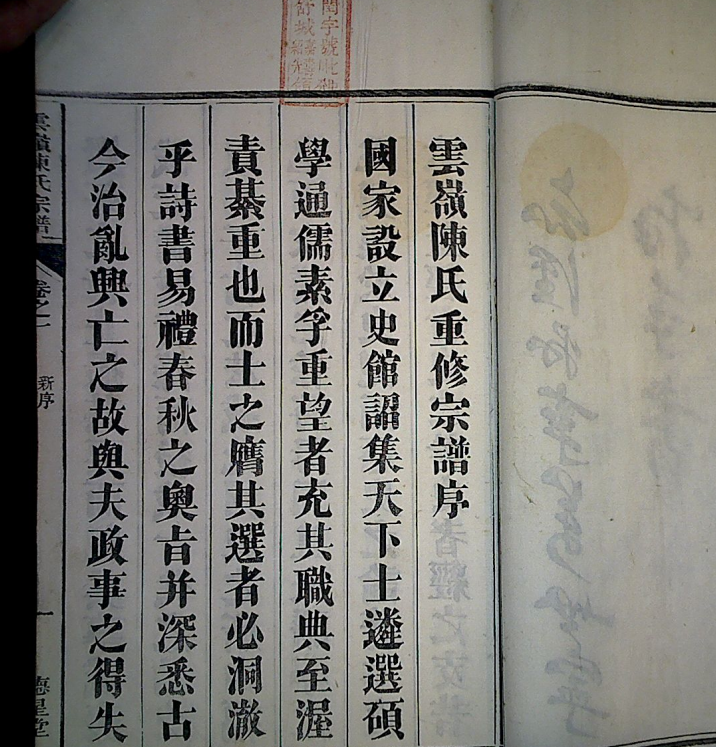 雲嶺陳氏重修宗譜序
國家設立史館詔集天下士遴選碩
學通儒素孚重望者充其職典至渥
責綦重也而士之膺其選者必洞澈
乎詩書易禮春秋之奥旨并深悉古
今治亂興亡之故與夫政事之得失
雲嶺陳氏宗譜
卷之一
新序
一
德星堂